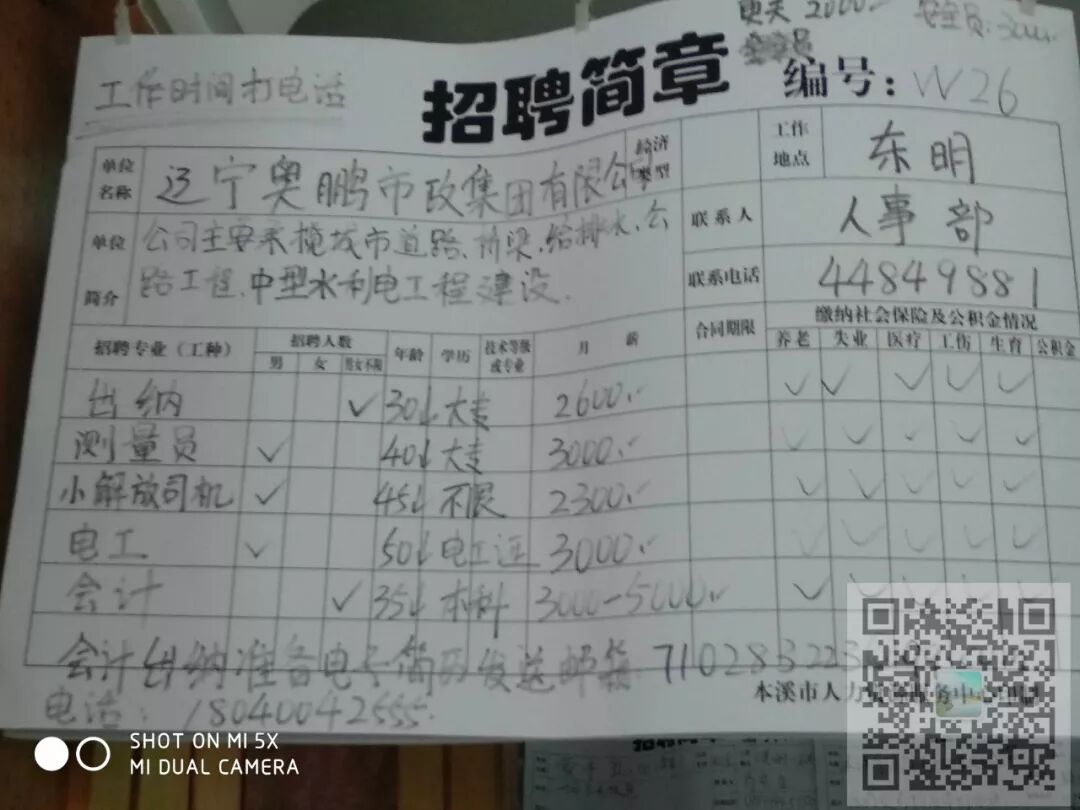 更夫 2000
安全员:3000
工作时间打电话
招聘简章
编号: W26
单位名称 辽宁奥鹏市政集团有限公司 经济类型 工作地点 东明
单位简介 公司主要承揽城市道路、桥梁、给排水、公路工程、中型水利电工程建设. 联系人 人事部
联系电话 44849881
招聘专业(工种) 招聘人数 年龄 学历 技术等级或专业 月薪 合同期限 缴纳社会保险及公积金情况
男 女 男女不限 养老 失业 医疗 工伤 生育 公积金
出纳 ✓ 30↓ 大专 2600 ✓ ✓ ✓ ✓ ✓
测量员 ✓ 40↓ 大专 3000 ✓ ✓ ✓ ✓ ✓
小解放司机 ✓ 45↓ 不限 2300 ✓ ✓ ✓ ✓ ✓
电工 ✓ 50↓ 电工证 3000 ✓ ✓ ✓ ✓ ✓
会计 ✓ 35↓ 本科 3000-5000 ✓ ✓
会计出纳准备电子简历发送邮箱 710283223
电话: 18040042555
本溪市人力
SHOT ON MI 5X
MI DUAL CAMERA
招聘简章